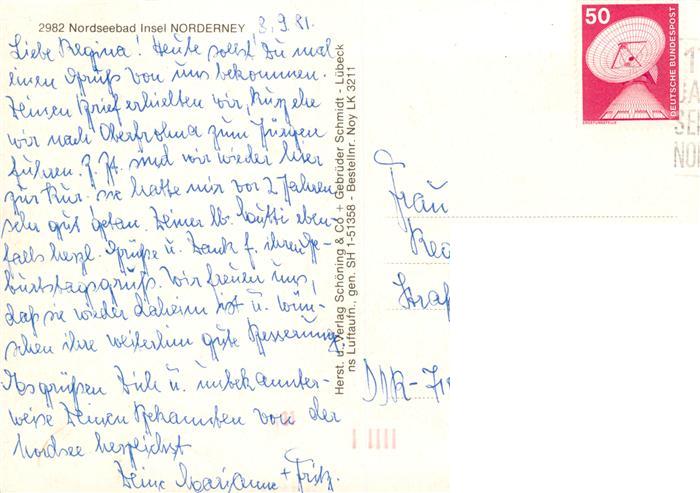 2982 Nordseebad Insel NORDERNEY 8.9.81.
Liebe Regina! Heute sollst Du mal
einen Gruß von uns bekommen.
Deinen Brief erhielten wir, kurz ehe
wir nach Oberfrohna zum Jürgen
fuhren. Z. Zt. sind wir wieder hier
zur Kur. sie hatte mir vor 2 Jahren
sehr gut getan. Deiner lb. Mutti eben-
falls herzl. Grüße u. Dank f. ihren Ge-
burtstagsgruß. Wir freuen uns,
daß sie wieder daheim ist u. wün-
schen ihr weiterhin gute Besserung.
Es grüßen Dich u. unbekannter-
weise Deinen Bekannten von der
Nordsee herzlichst
Deine Marianne + Fritz.
Herst. u. Verlag Schöning & Co + Gebrüder Schmidt - Lübeck
ns Luftaufn., gen. SH 1-51358 - Bestellnr. Noy LK 3211
50
DEUTSCHE BUNDESPOST
ERDEFUNKSTELLE
Frau
Straß
DDR-71